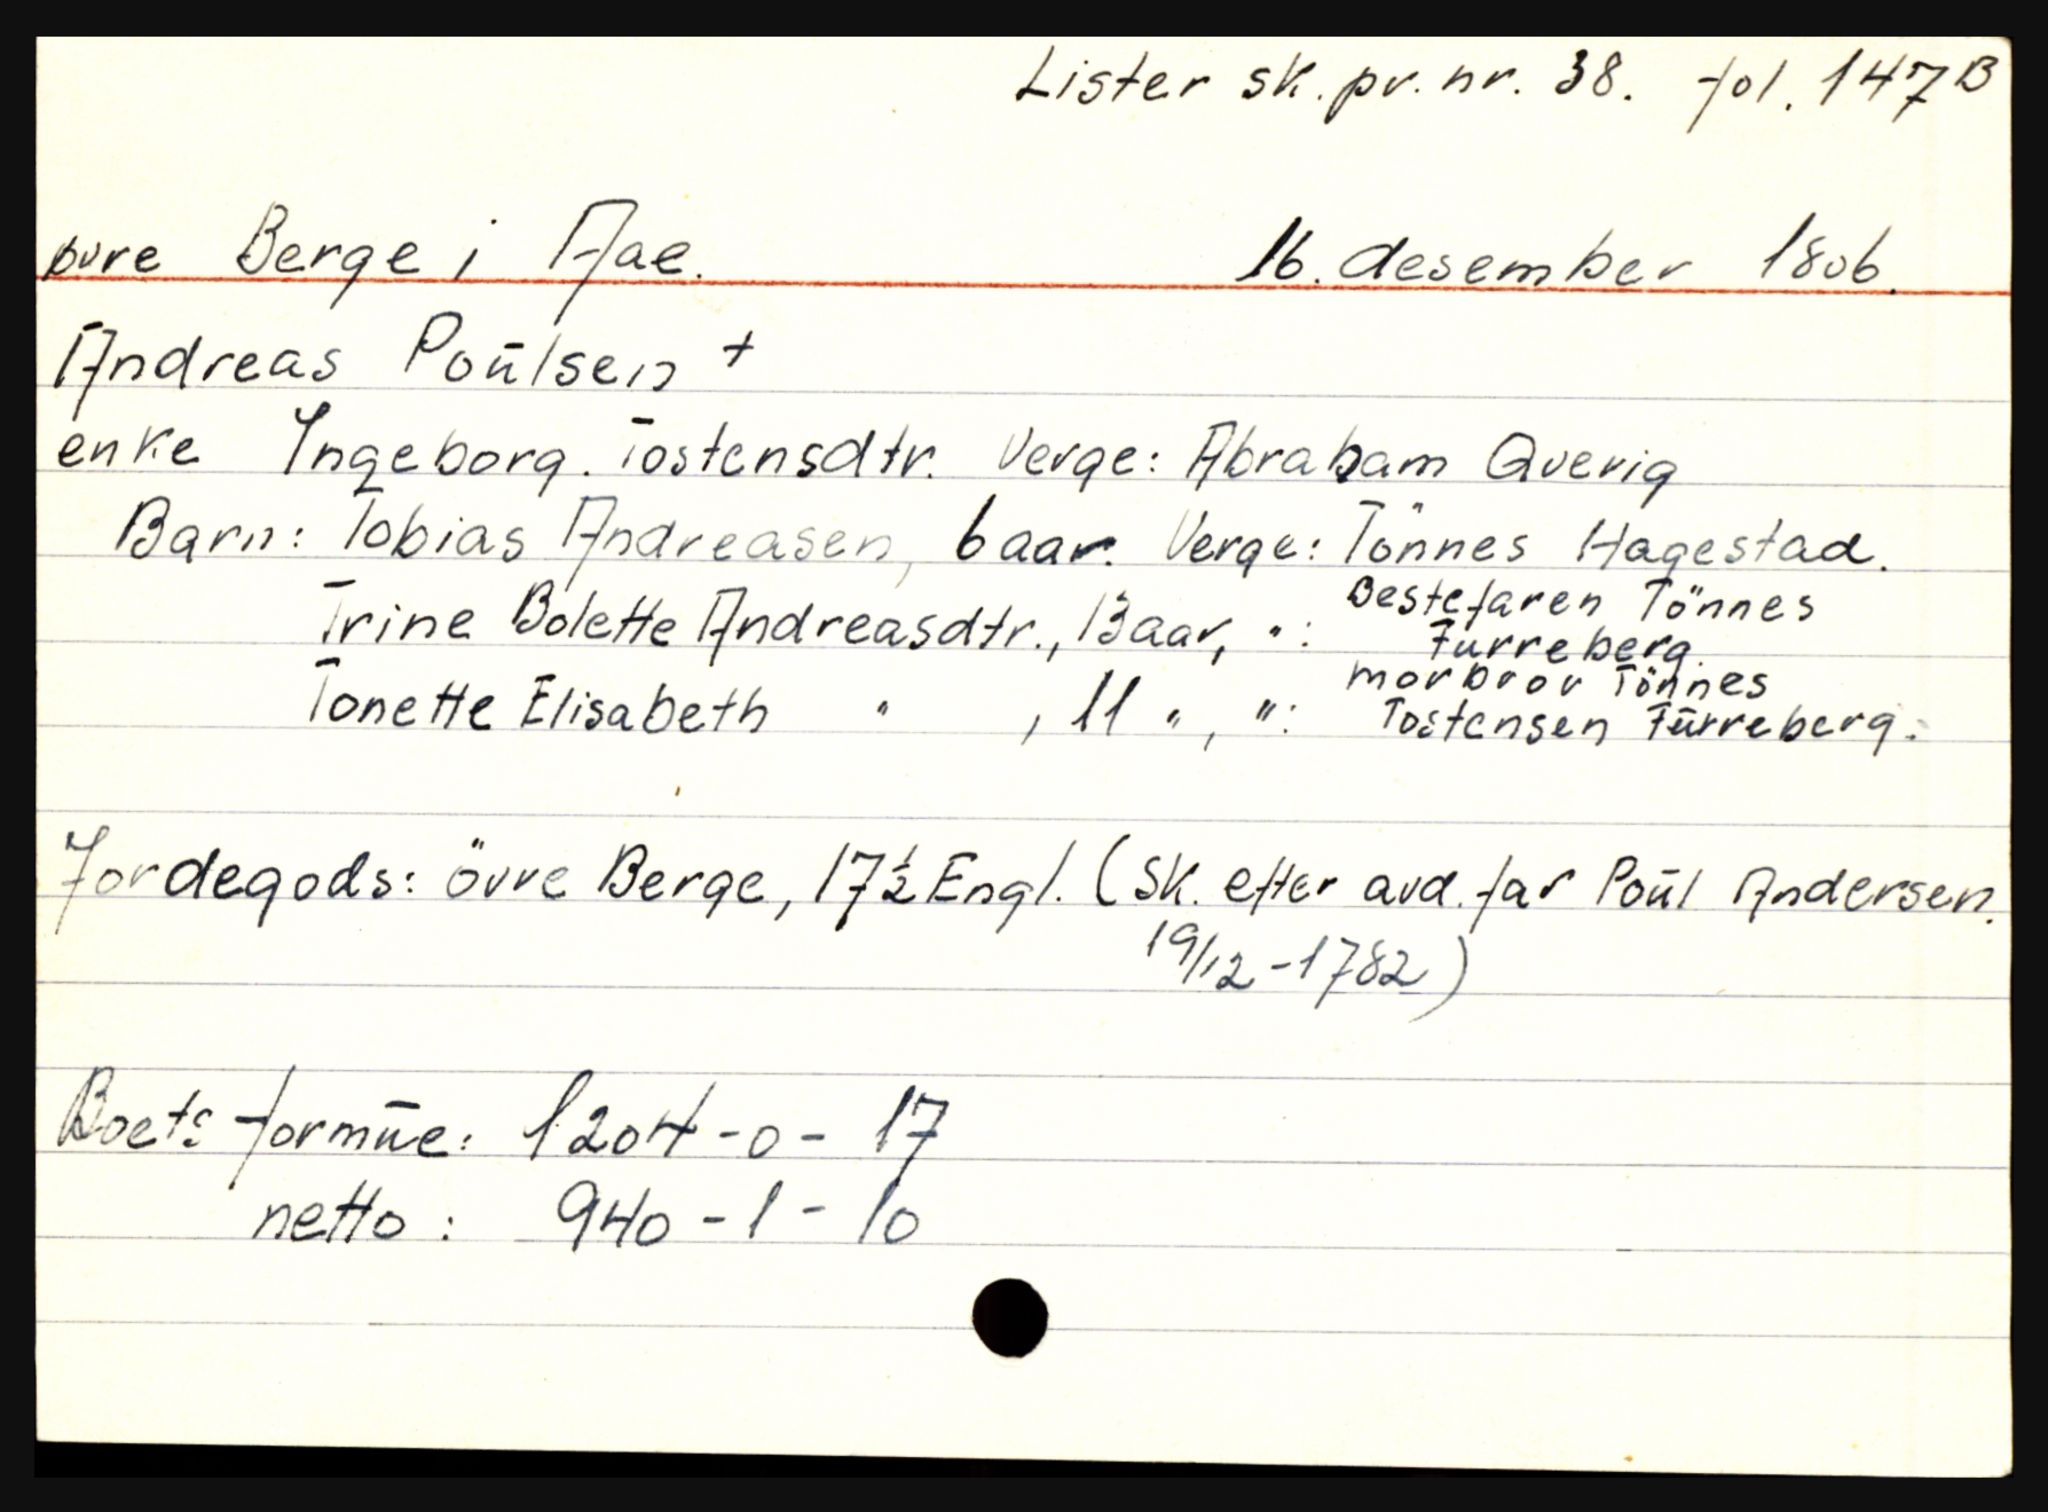 Lister sk. pr. nr. 38. fol. 147B
øvre Berge i Aae. 16. desember 1806.
Andreas Poūlsen +
enke Ingeborg. Tostensdtr. Verge: Abraham Qverig
Barn: Tobias Andreasen, 6 aar. Verge: Tönnes Hagestad.
Trine Bolette Andreasdtr., 13 aar, ": Bestefaren Tönnes Furreberg.
Tonette Elisabeth " , 11 ", ": morbror Tönnes Tostensen Fūrreberg.
Jordegods: övre Berge, 17 ½ Engl. (Sk. efter avd. far Poūl Andersen.
19/12 - 1782)
Boets formūe: 1204 - 0 - 17
netto: 940 - 1 - 10